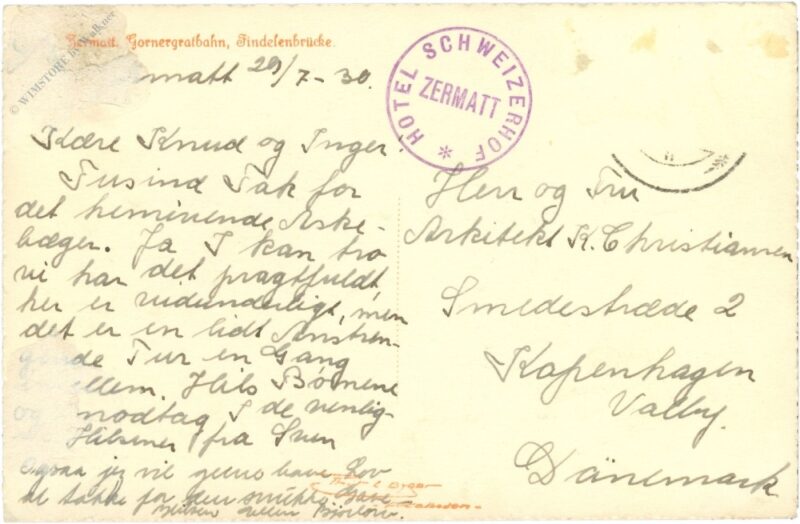 Zermatt. Gornergratbahn, Findelenbrücke.
© WIMSTORE by Walkner
matt 29/7-30.
HOTEL SCHWEIZERHOF
ZERMATT
Kære Knud og Inger
Tusind Tak for
det henrivende Aske-
bæger. Ja I kan tro
vi har det pragtfuldt
her er vidunderligt, men
det er en lidt Anstren-
gende Tur en Gang
imellem. Hils Børnene
og modtag I de venlig-
Hilsener fra Sven
Ogsaa jeg vil gerne have Lov
til takke for den smukke Gave
Hilsen
Herr og Fru
Arkitekt K. Christiansen
Smedestræde 2
Kopenhagen
Valby.
Dänemark